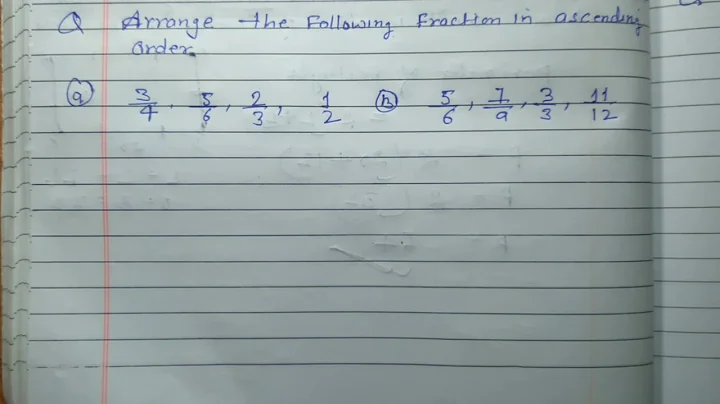 Q Arrange the Following Fraction in ascending
order.
(a) 3/4, 5/6, 2/3, 1/2 (b) 5/6, 7/9, 3/3, 11/12